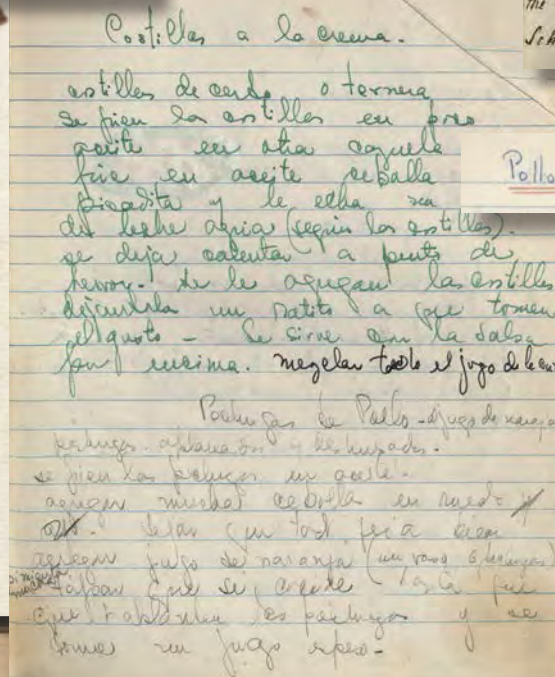 the
Sch
Costillas a la crema.
costillas de cerdo o ternera
se frien las costillas en poco
aceite en otra cazuela
frie en aceite cebolla
picadita y le echa
de leche agria (según las costillas).
se deja calentar a punto de
hervor. se le agregan las costillas
dejandola un ratito a que tomen
el gusto - Se sirve con la salsa
por encima. mezclar todo el jugo de la
Pollo
Pechugas de Pollo - jugo de naranja
pechugas aplanadas y deshuesadas.
se frien las pechugas en aceite.
agregar mucha cebolla en rueda
dejar que todo fria bien
agregar jugo de naranja (un vaso 6 pechugas)
tapar que se cocine
que ablanden las pechugas y se
forme un jugo espeso-